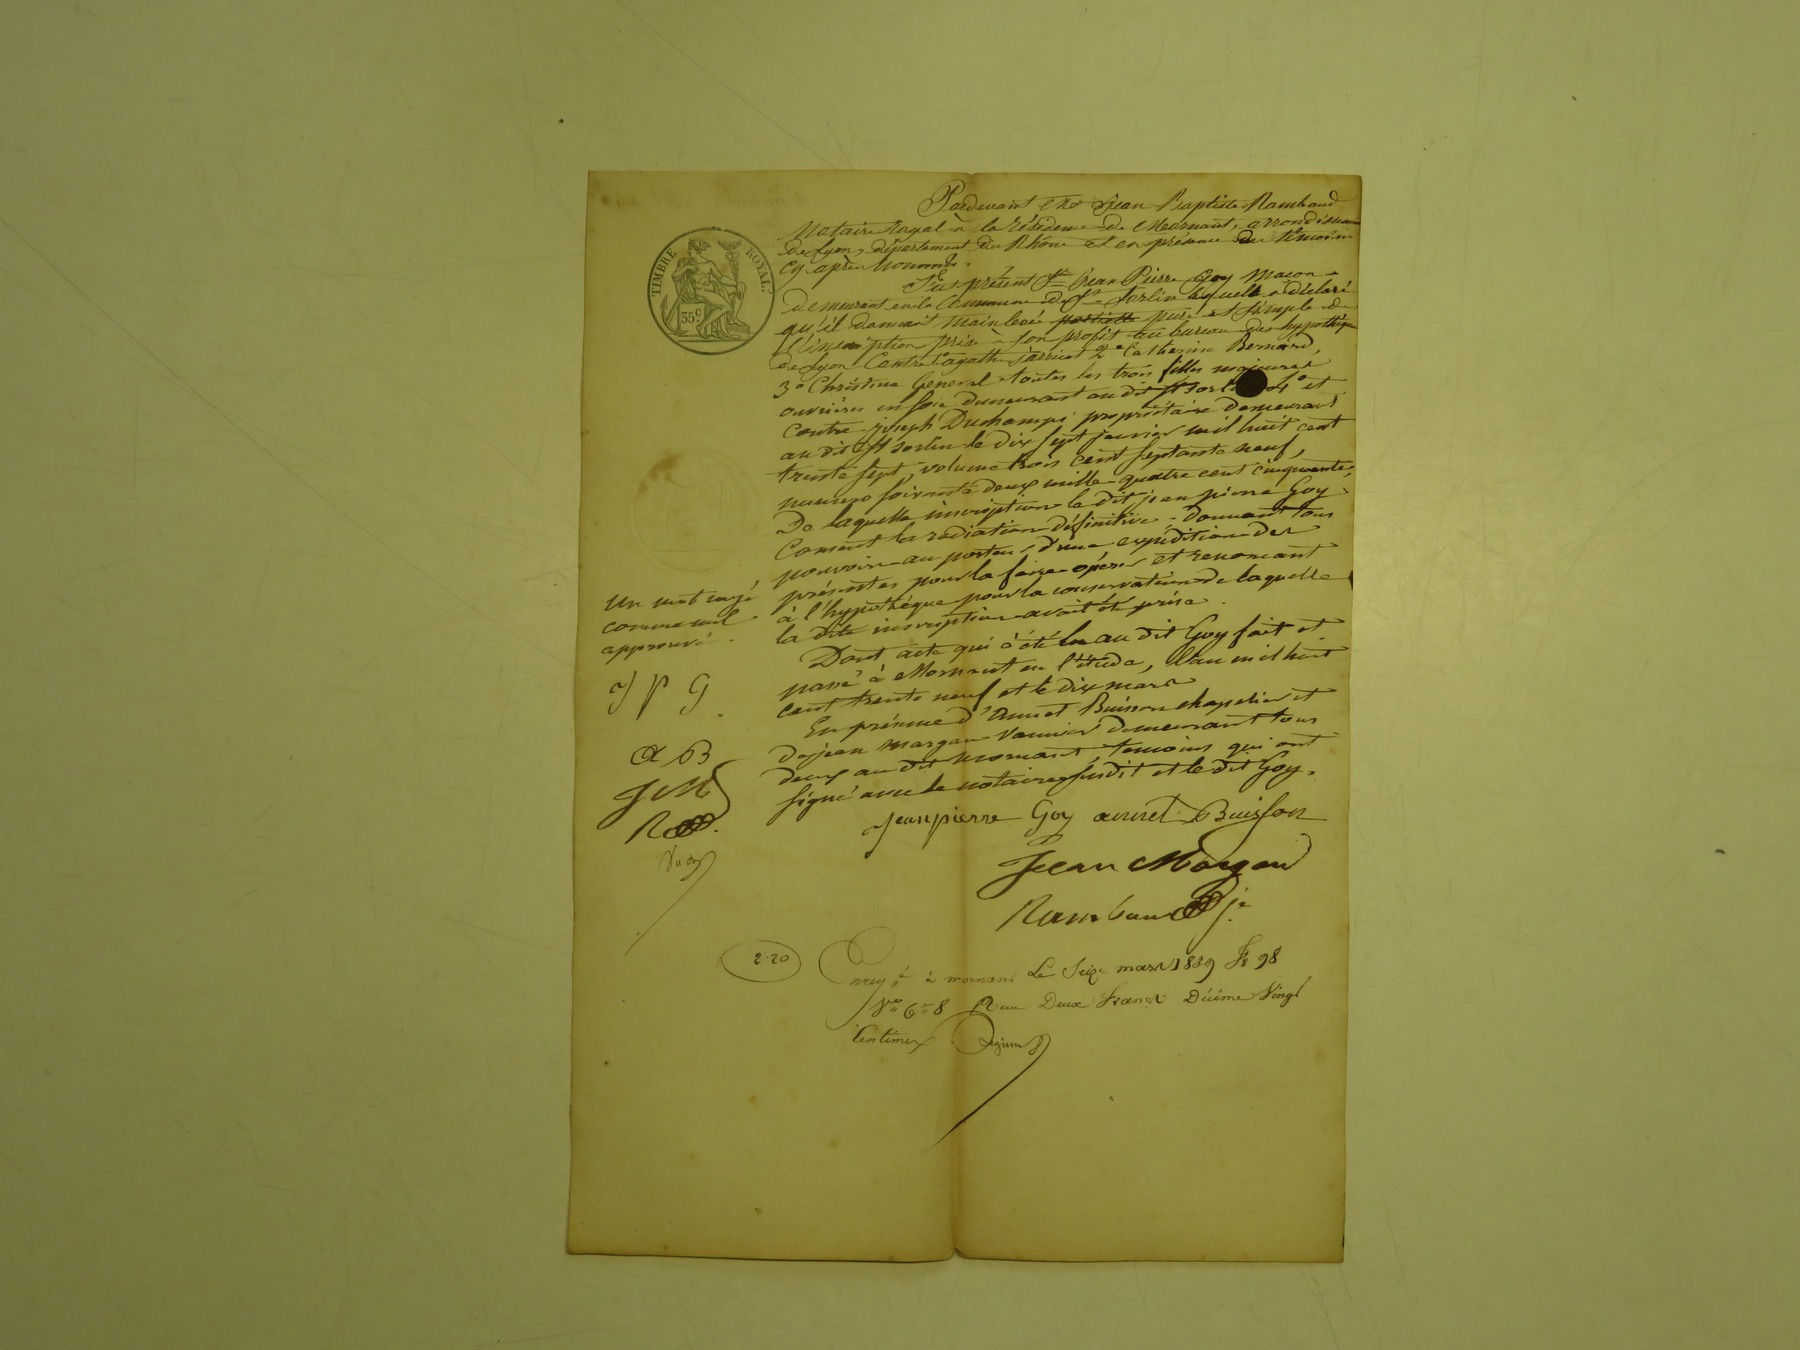 Pardevant Me Jean Baptiste Rambaud
Notaire Royal à la résidence de Mornant, arrondissement
de Lyon, département du Rhône et en présence des témoins
cy après nommés.
TIMBRE ROYAL.
35c
Fut présent Sr Jean Pierre Goy Maçon
demeurant en la Commune de St Sorlin lequel a déclaré
qu'il donnait Main levée partielle pure et simple de
l'inscription prise à son profit au bureau des hypothèques
de Lyon Contre agathe 2° Catherine Bernard,
3° Christine General toutes les trois filles majeures
ouvrières en soie demeurant au dit St Sorlin 4° et
contre Joseph Duchamps propriétaire demeurant
au dit St Sorlin le dix sept janvier mil huit cent
trente sept, volume trois cent septante neuf,
numero soixante deux mille quatre cent cinquante,
De laquelle inscription le dit jean pierre Goy
Consent la radiation définitive donnant tous
pouvoirs au porteur d'une expédition des
présentes pour la faire opérer et renonçant
à l'hypothèque pour la conservation de laquelle
la dite inscription avait été prise.
Un mot rayé
comme nul
approuvé.
Dont acte qui a été lu au dit Goy fait et
passé à Mornant en l'étude, l'an mil huit
cent trente neuf et le dix mars
En présence d'Annet Buisson chapelier et
de jean Margau Vannier demeurant tous
deux au dit mornant, temoins qui ont
signé avec le notaire susdit et le dit Goy.
J P G
A B
J M
R
Jean pierre Goy annet Buisson
Jean Margau
Rambaud je
2-20
Enregé à mornant Le Seize mars 1839 Fo 98
Vo Ce 8 Reçu Deux francs Décime Vingt
Centimes